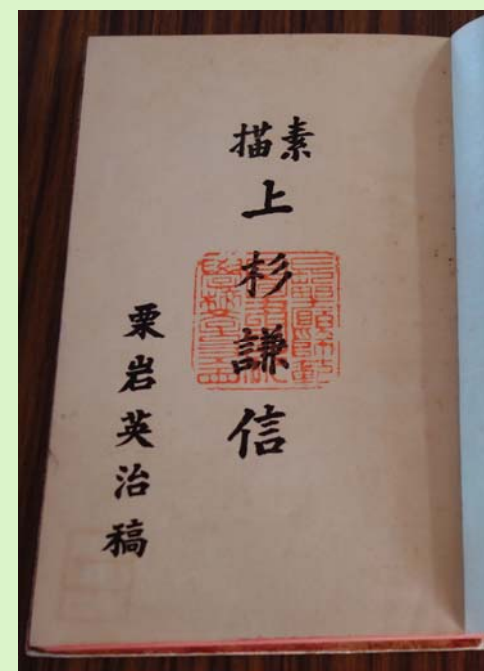 素描
上杉謙信
栗岩英治稿